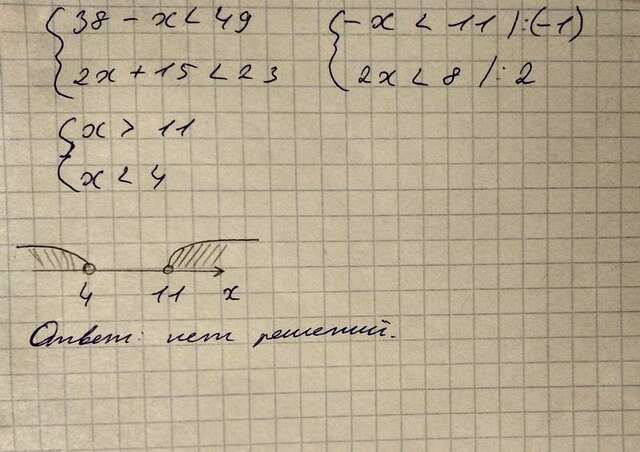 38 - x < 49
2x + 15 < 23
-x < 11 |:(-1)
2x < 8 |:2
x > 11
x < 4
4 11 x
Ответ: нет решений.